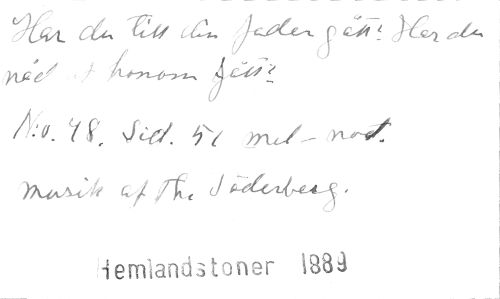 Har du till din fader gått? Har du
nåd af honom fått?
N:o. 48. Sid. 51 mel-not.
musik af Th. Söderberg.
Hemlandstoner 1889